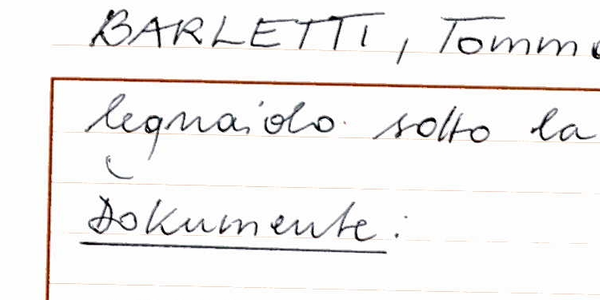 BARLETTI, Tomm
legnaiolo sotto la
Dokumente: